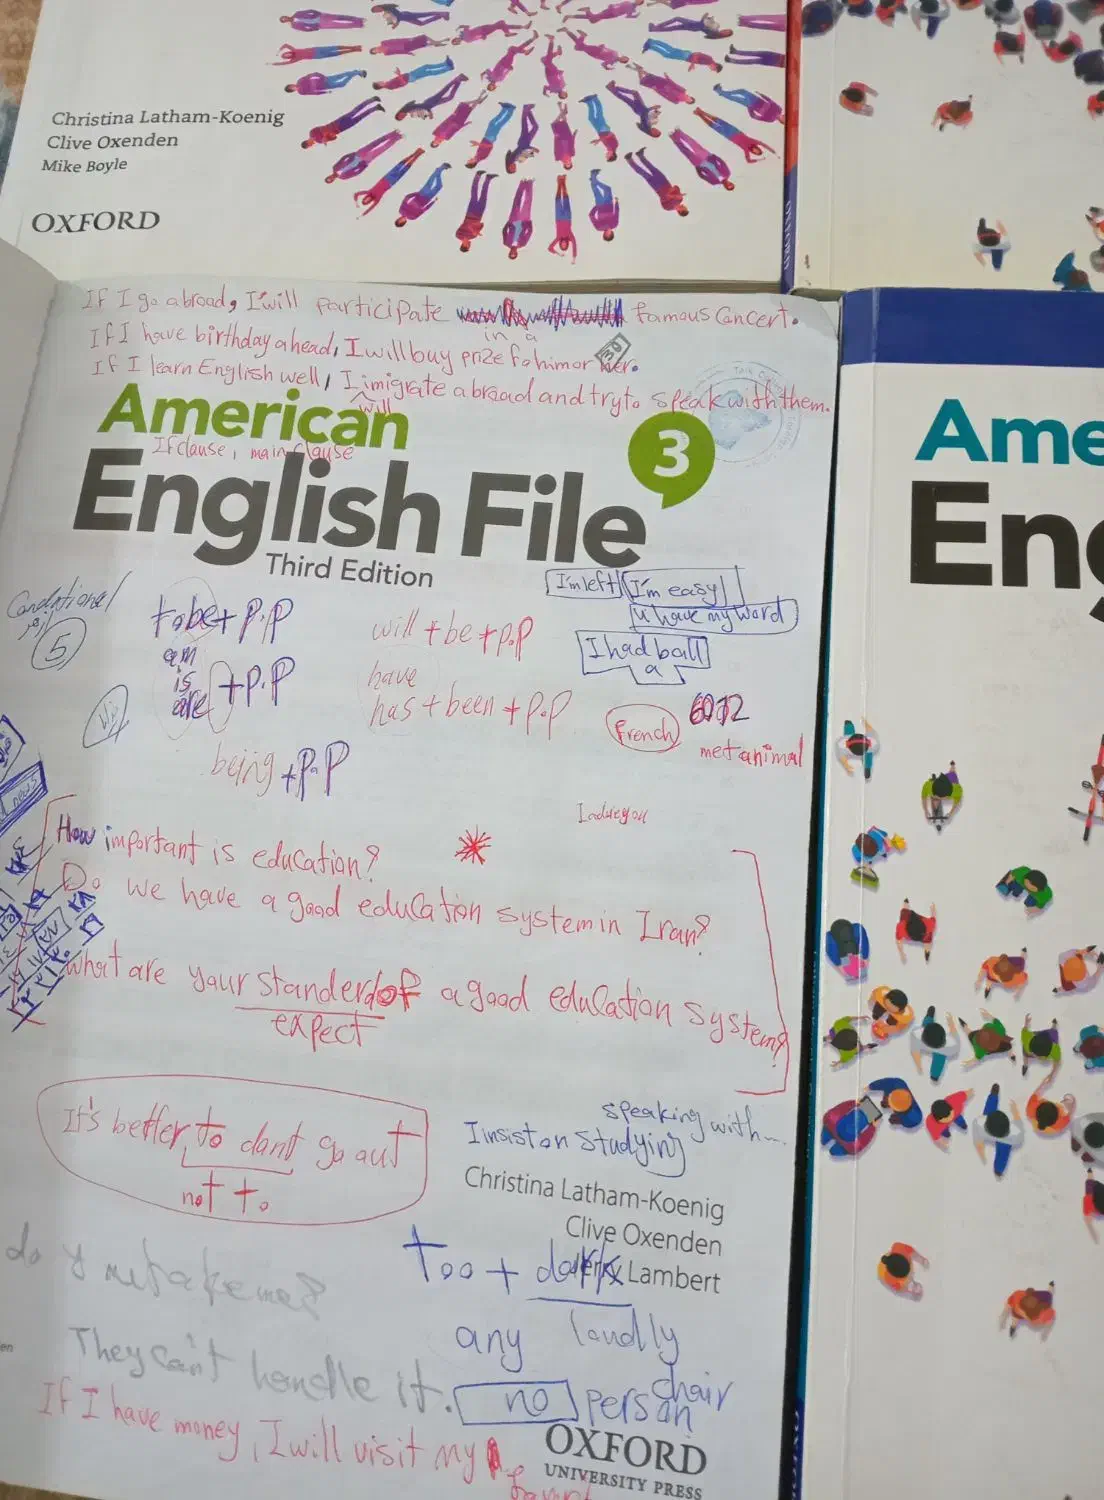 Christina Latham-Koenig
Clive Oxenden
Mike Boyle
OXFORD
OXFORD
If I go abroad, I will participate in a famous concert.
If I have birthday ahead, I will buy prize for him or her.
If I learn English well, I will imigrate abroad and try to speak with them.
American
If clause, main clause
English File
3
Third Edition
Conditional
5
to be + P.P
am
is
are + P.P
being + P.P
will + be + P.P
have
has + been + P.P
I'm left
I'm easy
u have my word
I had ball
a
French
met animal
How important is education?
Do we have a good education system in Iran?
What are your standerd of a good education system?
expect
It's better to don't go out
not to
speaking with...
I insist on studying
Christina Latham-Koenig
Clive Oxenden
Lambert
too +
loudly
any
no
chair
person
They can't handle it.
If I have money, I will visit my
OXFORD
UNIVERSITY PRESS
Ame
Eng